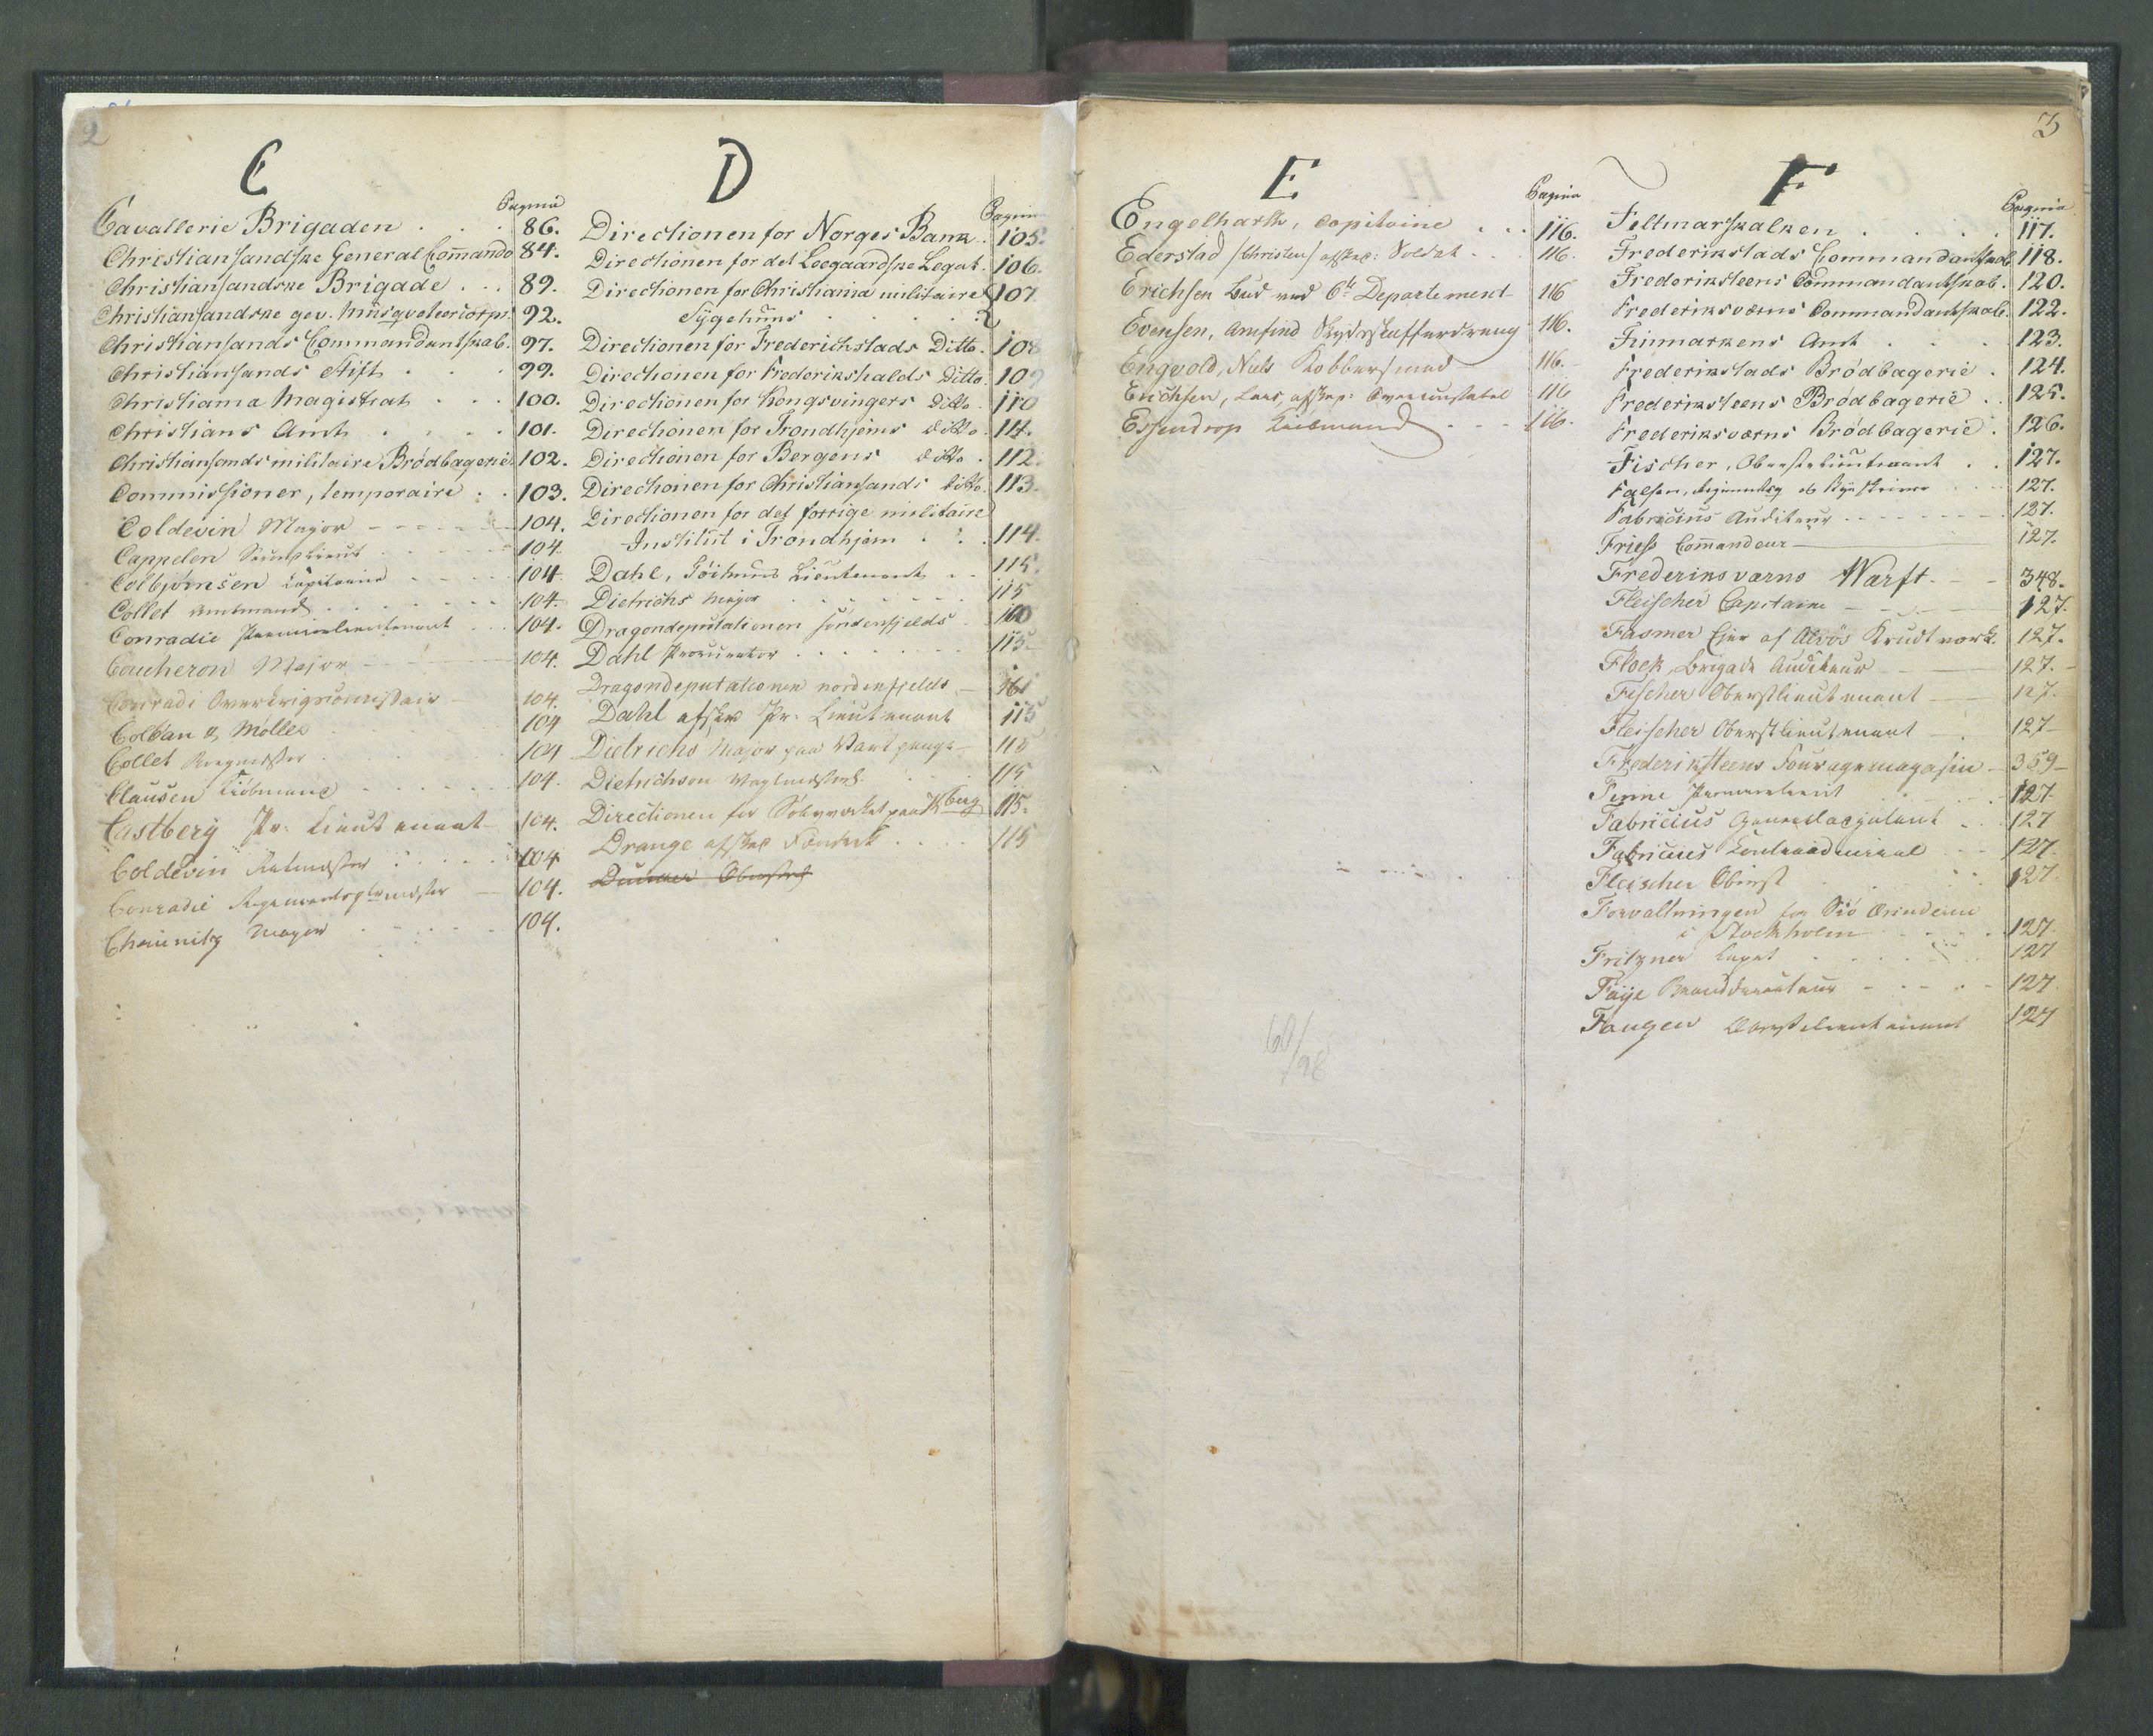 2
C
Pagina
Cavallerie Brigaden . . . 86.
Christiansandske General Com̄ando 84.
Christiansandske Brigade . . . 89.
Christiansandske gev. Musqveteercorps. 92.
Christiansands Commandantskab. 97.
Christiansands Stift . . . 99.
Christiania Magistrat . . . 100.
Christians Amt . . . . 101.
Christiansands militaire Brødbagerie 102.
Commissioner, temporaire . . 103.
Coldevin Major 104.
Cappelen 104.
Colbjørnsen Capitaine 104.
Collet Amtmand 104.
Conradie Premierlieutenant 104.
Coucheron Major 104.
Conradi Overkrigscommissair 104.
Colban & Møller 104
Collet 104
Clausen Kiøbmand 104.
Castberg Pr: Lieutenant 104.
Coldevin Ritmester 104
Conradie 104.
Chemnitz Major 104.
D
Pagina
Directionen for Norges Bank . . 105.
Directionen for det Leegaardske Legat. 106.
Directionen for Christiania militaire 107
Sygehuus
Directionen for Frederichstads Ditto. 108
Directionen for Frederikshalds Ditto. 109
Directionen for Kongsvingers Ditto 110
Directionen for Trondhjems ditto 111.
Directionen for Bergens ditto . 112.
Directionen for Christiansands ditto. 113.
Directionen for det forrige militaire
Institut i Trondhjem . . . 114.
Dahl, Tøihuus Lieutenant . . 115.
Dietrichs Major 115
Dragondeputationen søndenfjelds 160
Dahl Procurator 115
Dragondeputationen nordenfjelds 161
Dahl afsked Pr. Lieutenant 115
Dietrichs, Major paa Vartpenge 115
Dietrichson Vagtmester 115
Directionen for Sølvværket paa K.berg 115.
Drange afsked 115
E
Pagina
Engelharth, Capitaine . . . 116.
Ederstad /Christen/ afsked: Soldat . . 116.
Erichsen Bud ved 6te Departement 116
Evensen, Amfind 116.
Engvold, Niels Kobbersmed 116.
Erichsen, Lars, afsked: 116
Essendrop Kiøbmand 116.
60/98
3
F
Pagina
Feltmarskalken . . . . 117.
Frederikstads Commandantskab 118.
Frederiksteens Commandantskab. 120.
Frederiksværns Commandantskab. 122.
Finmarkens Amt . . . 123.
Frederikstads Brødbagerie . 124.
Frederiksteens Brødbagerie . . 125.
Frederiksværns Brødbagerie . 126.
Fischer, Oberstelieutenant . . 127.
Falsen, 127.
Fabricius Auditeur 127.
Friess Com̄andeur 127.
Frederiksværns Værft. 348.
Fleischer Capitaine 127.
Fasmer Eier af Alvøs Krudtværk. 127.
Flock, Brigade Auditeur 127.
Fischer Oberstlieutenant 127.
Fleischer Oberstlieutenant 127
Frederiksteens Fouragemagasin 359
Finne Premierlieut 127
Fabricius Generaladjutant 127
Fabricius Contraadmiral 127.
Fleischer Oberst 127
Forvaltningen for Siø Ærinderne
i Stockholm 127
Fritzner Capt 127
Faye Branddirecteur 127.
Fougner Oberstelieutenant 127